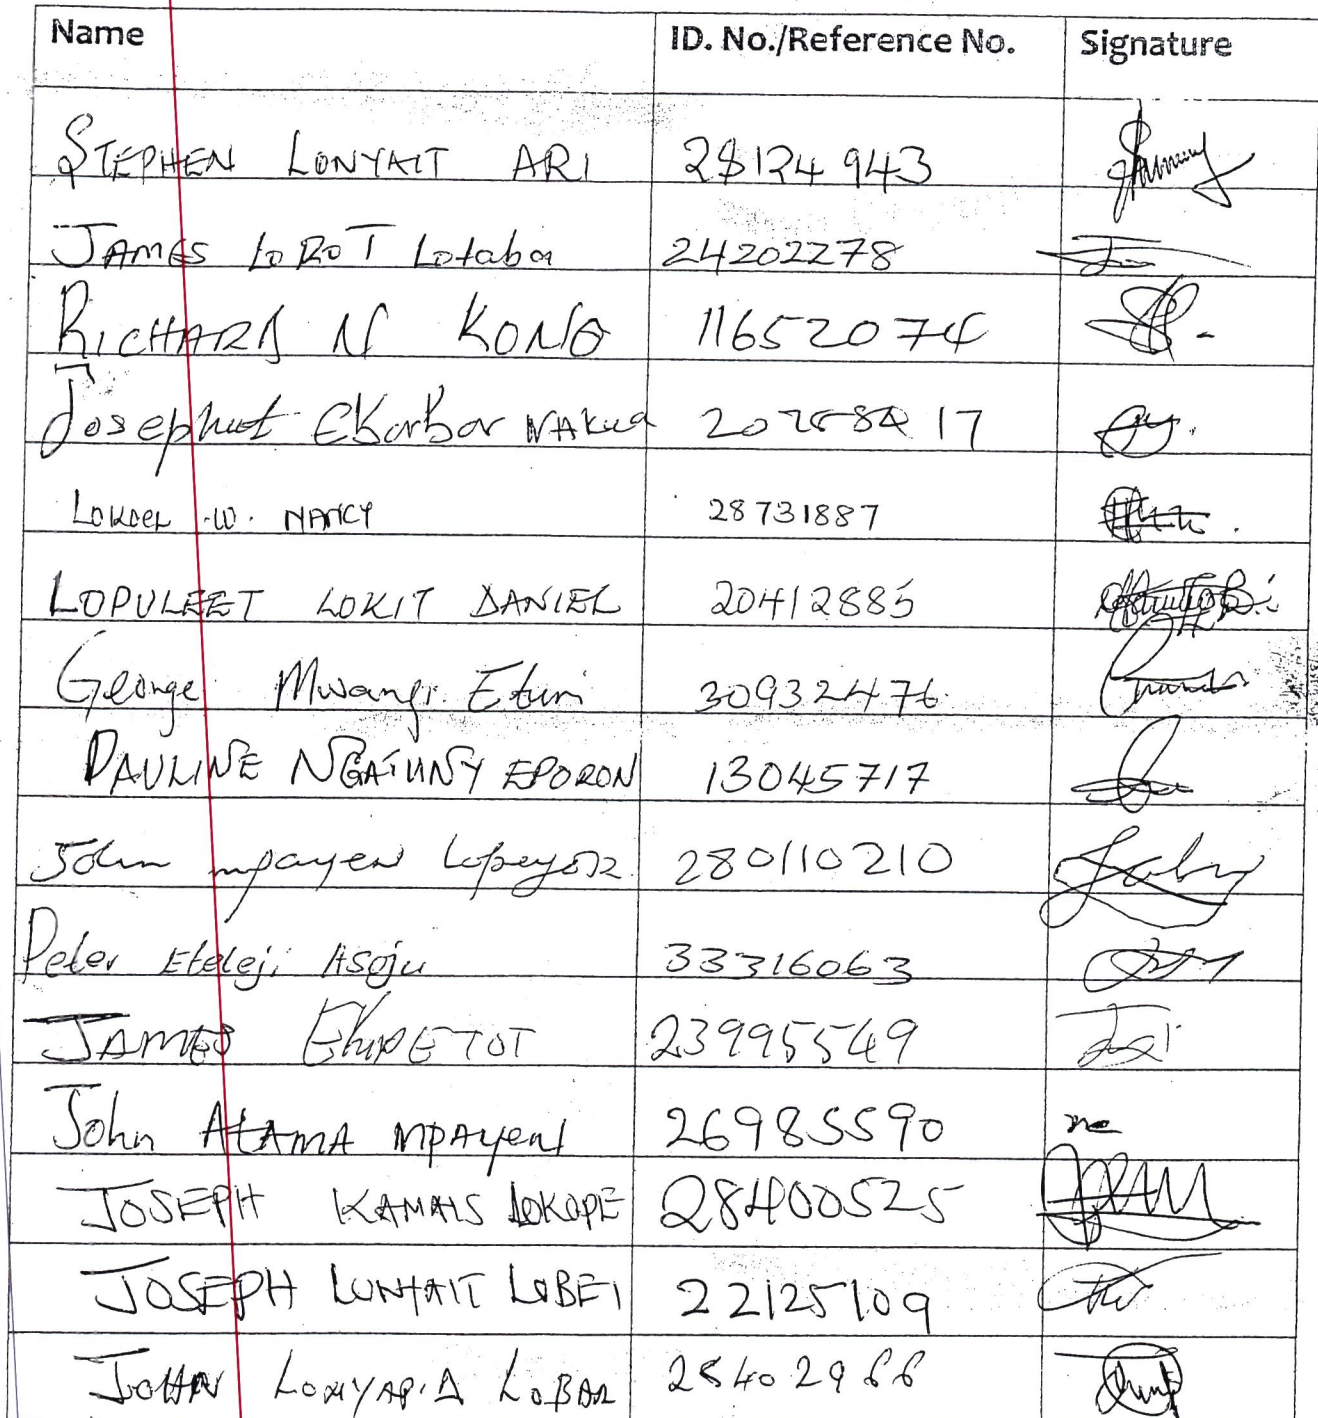 Name ID. No./Reference No. Signature
STEPHEN LONYAIT ARI 28124943
JAMES LOROT Lotaba 24202278
RICHARD N KONG 11652074
Ekarbar NAKUA
LOKOEL .W. NANCY 28731887
LOPULEET LOKIT DANIEL 20412885
George Mwangi Eturi 30932476
PAULINE NGATUNY EPORON 13045717
John mpayen 280110210
Peter Eteleji Asoju 33316063
JAMES 23995549
John ATAMA MPAyeni 26985590
JOSEPH KAMAIS LOKOPE 28400525
JOSEPH LONYAIT LOBEI 22125109
JOHN